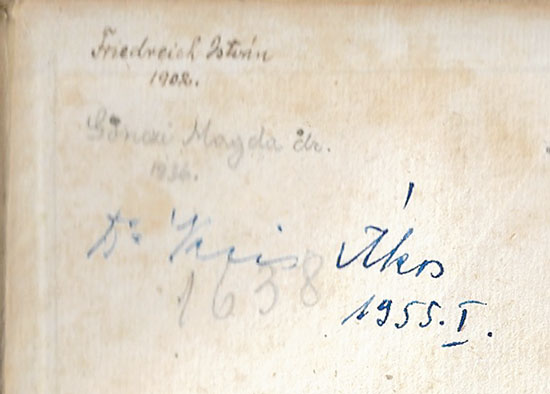 Friedreich István
1902.
Gönczi Magda dr.
1936.
Dr Kis Ákos
1638
1955.I.